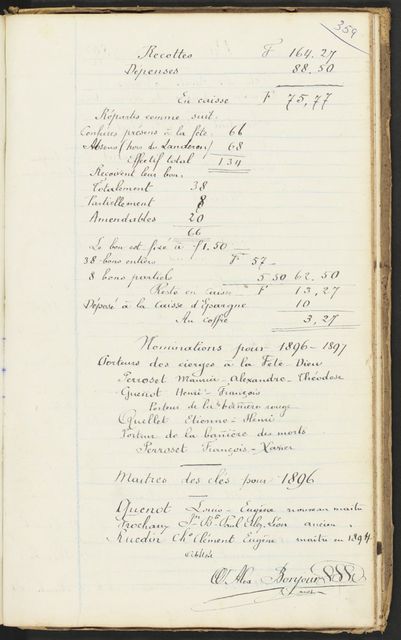 359
Recettes F 164.27
Dépenses 88.50
En caisse F 75,77
Répartis comme suit.
Confrères présens à la fête 66
Absens (hors du Landeron) 68
Effectif total 134
Recoivent leur bon.
Totalement 38
Partiellement 8
Amendables 20
66
Le bon est fixé à f 1.50
38 bons entiers F 57
8 bons partiels 5 50 62.50
Reste en caisse F 13,27
Déposé à la Caisse d'Epargne 10
Au coffre 3,27
Nominations pour 1896-1897
Porteurs des cierges à la Fête Dieu
Perroset Maurice - Alexandre - Théodose
Quenot Henri - François
Porteur de la bannière rouge
Quellet Etienne - Henri
Porteur de la banière des morts
Perroset François - Xavier
Maitres des clés pour 1896
Quenot Louis - Eugène nouveau maitre
Frochaux Paul Léon ancien
Ruedin Clément Eugène maitre en 1894
Alex Bonjour